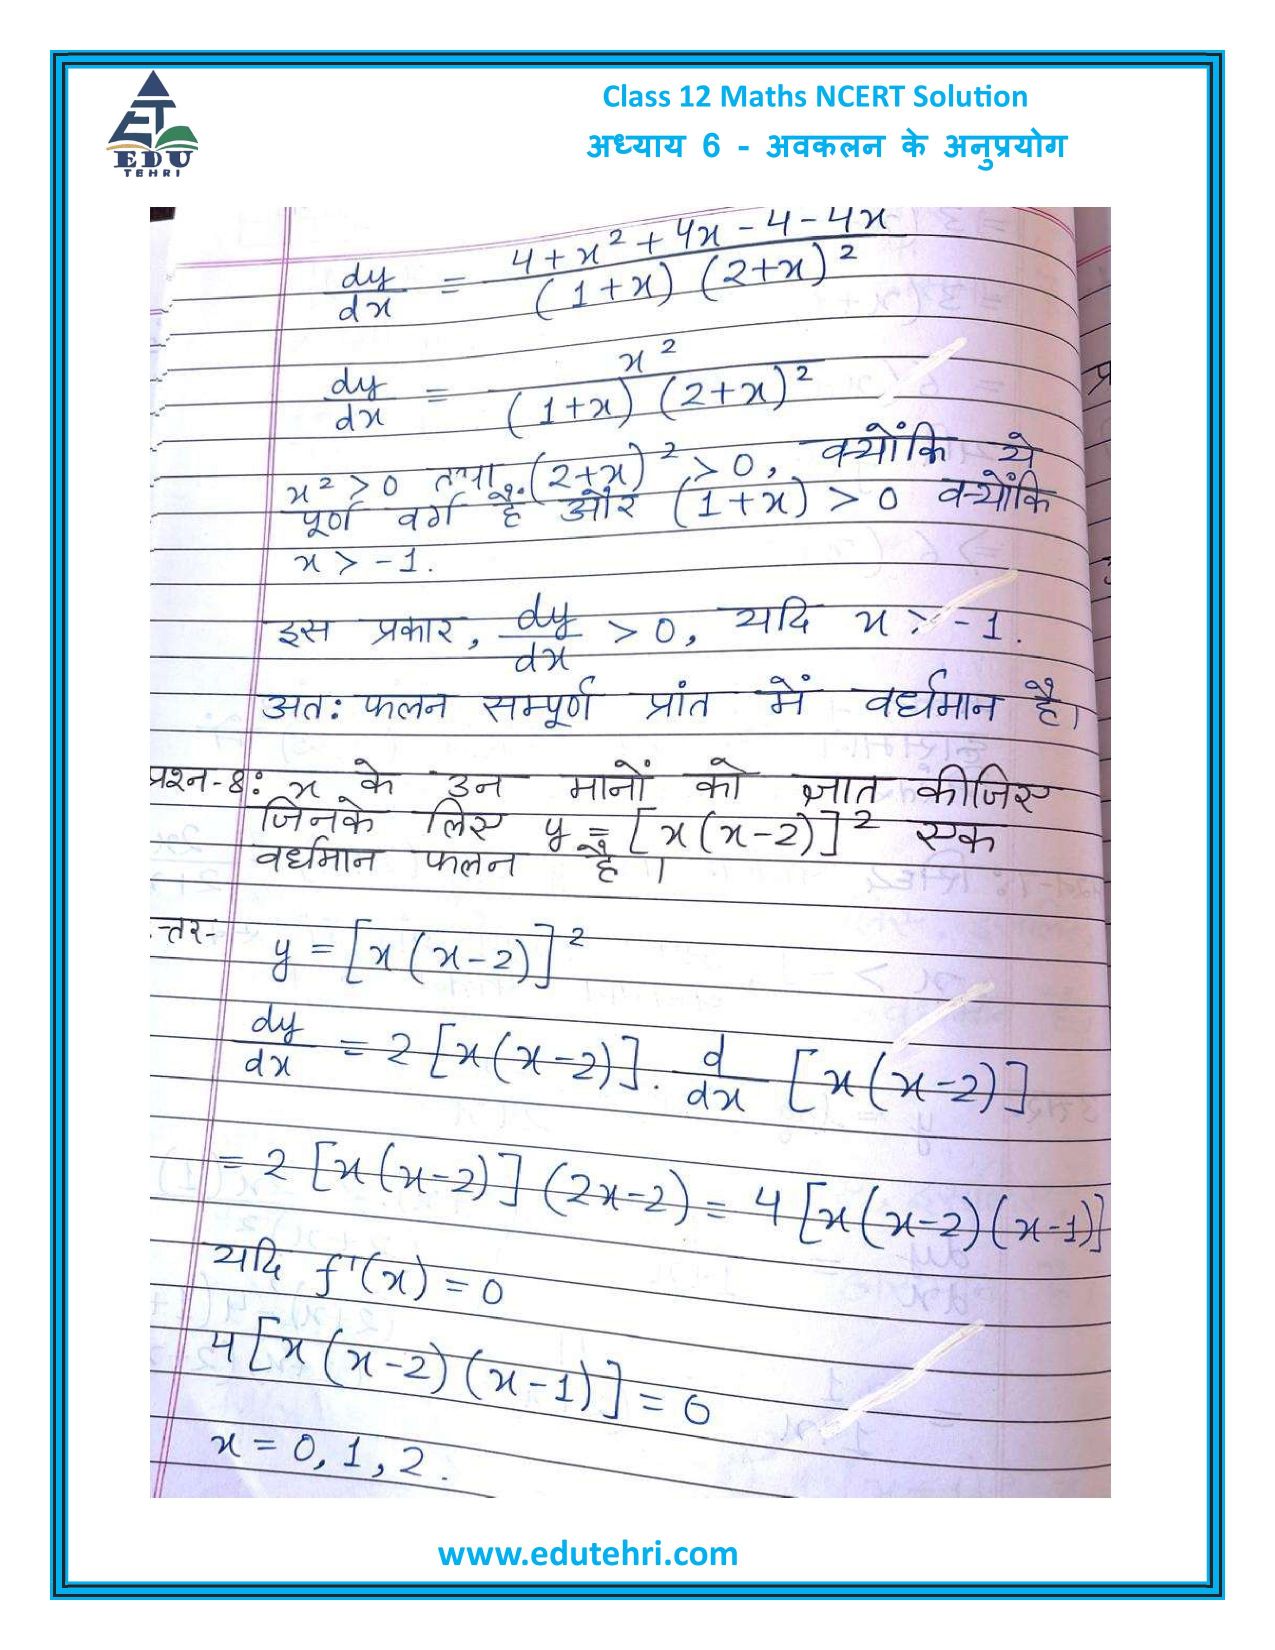 ET
EDU
TEHRI
Class 12 Maths NCERT Solution
अध्याय 6 - अवकलन के अनुप्रयोग
dy/dx = 4+x²+4x-4-4x / (1+x) (2+x)²
dy/dx = x² / (1+x) (2+x)²
x² > 0 तथा (2+x)² > 0, क्योंकि ये
पूर्ण वर्ग हैं और (1+x) > 0 क्योंकि
x > -1.
इस प्रकार, dy/dx > 0, यदि x > -1.
अत: फलन सम्पूर्ण प्रांत में वर्धमान है।
प्रश्न-8: x के उन मानों को ज्ञात कीजिए
जिनके लिए y = [x(x-2)]² एक
वर्धमान फलन है।
त्तर- y = [x(x-2)]²
dy/dx = 2[x(x-2)]. d/dx [x(x-2)]
= 2[x(x-2)](2x-2) = 4[x(x-2)(x-1)]
यदि f'(x) = 0
4[x(x-2)(x-1)] = 0
x = 0, 1, 2.
www.edutehri.com